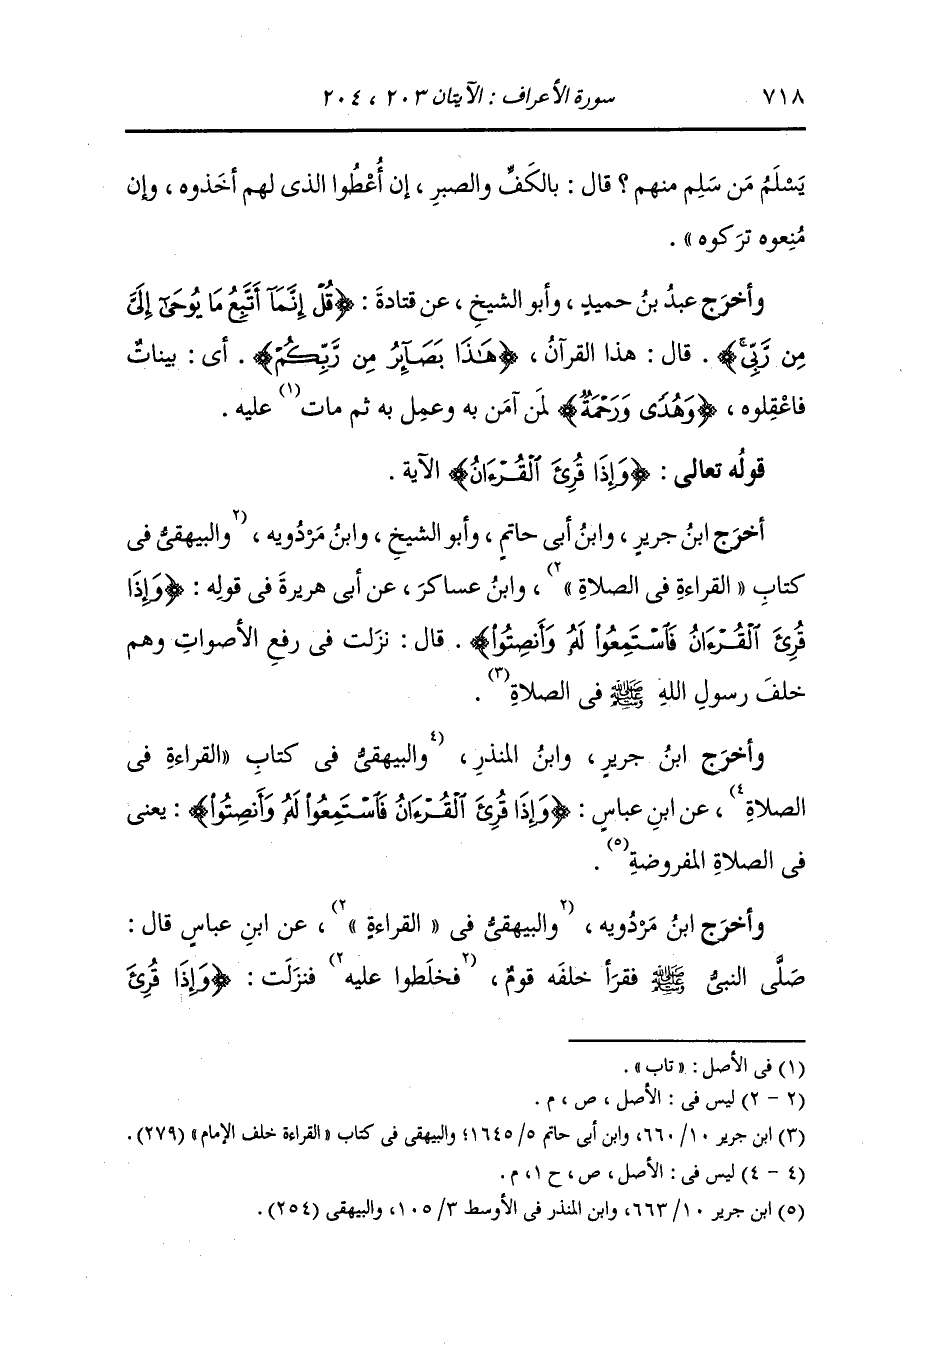 ٧١٨ سورة الأعراف : الآيتان ٢٠٣ ، ٢٠٤
يَسْلَمُ مَن سَلِم منهم ؟ قال : بالكَفِّ والصبرِ ، إن أُعْطُوا الذى لهم أخَذوه ، وإن
مُنِعوه ترَكوه » .
وأخرَج عبدُ بنُ حميدٍ ، وأبو الشيخِ ، عن قتادةَ : ﴿قُلْ إِنَّمَآ أَتَّبِعُ مَا يُوحَىٰٓ إِلَىَّ
مِن رَّبِّىۚ﴾ . قال : هذا القرآنُ ، ﴿هَٰذَا بَصَآئِرُ مِن رَّبِّكُمْ﴾ . أى : بيناتٌ
فاعْقِلوه ، ﴿وَهُدًى وَرَحْمَةٌ﴾ لمَن آمَن به وعمِل به ثم مات(١) عليه .
قولُه تعالى : ﴿وَإِذَا قُرِئَ ٱلْقُرْءَانُ﴾ الآية .
أخرَج ابنُ جريرٍ ، وابنُ أبى حاتمٍ ، وأبو الشيخِ ، وابنُ مَرْدُويه ، (٢والبيهقىُّ فى
كتابِ « القراءةِ فى الصلاةِ »٢) ، وابنُ عساكرَ ، عن أبى هريرةَ فى قولِه : ﴿وَإِذَا
قُرِئَ ٱلْقُرْءَانُ فَٱسْتَمِعُوا۟ لَهُۥ وَأَنصِتُوا۟﴾ . قال : نزَلت فى رفعِ الأصواتِ وهم
خلفَ رسولِ اللهِ ﷺ فى الصلاةِ(٣) .
وأخرَج ابنُ جريرٍ ، وابنُ المنذرِ ، (٤والبيهقىُّ فى كتابِ «القراءةِ فى
الصلاةِ٤) ، عن ابنِ عباسٍ : ﴿وَإِذَا قُرِئَ ٱلْقُرْءَانُ فَٱسْتَمِعُوا۟ لَهُۥ وَأَنصِتُوا۟﴾ : يعنى
فى الصلاةِ المفروضةِ(٥) .
وأخرَج ابنُ مَرْدُويه ، (٢والبيهقىُّ فى « القراءةِ »٢) ، عن ابنِ عباسٍ قال :
صَلَّى النبىُّ ﷺ فقرَأ خلفَه قومٌ ، (٢فخلَطوا عليه٢) فنزَلَت : ﴿وَإِذَا قُرِئَ
(١) فى الأصل : « تاب » .
(٢ - ٢) ليس فى : الأصل ، ص ، م .
(٣) ابن جرير ١٠/ ٦٦٠، وابن أبى حاتم ٥/ ١٦٤٥؛ والبيهقى فى كتاب «القراءة خلف الإمام» (٢٧٩).
(٤ - ٤) ليس فى : الأصل ، ص ، ح ١، م .
(٥) ابن جرير ١٠/ ٦٦٣، وابن المنذر فى الأوسط ٣/ ١٠٥، والبيهقى (٢٥٤).